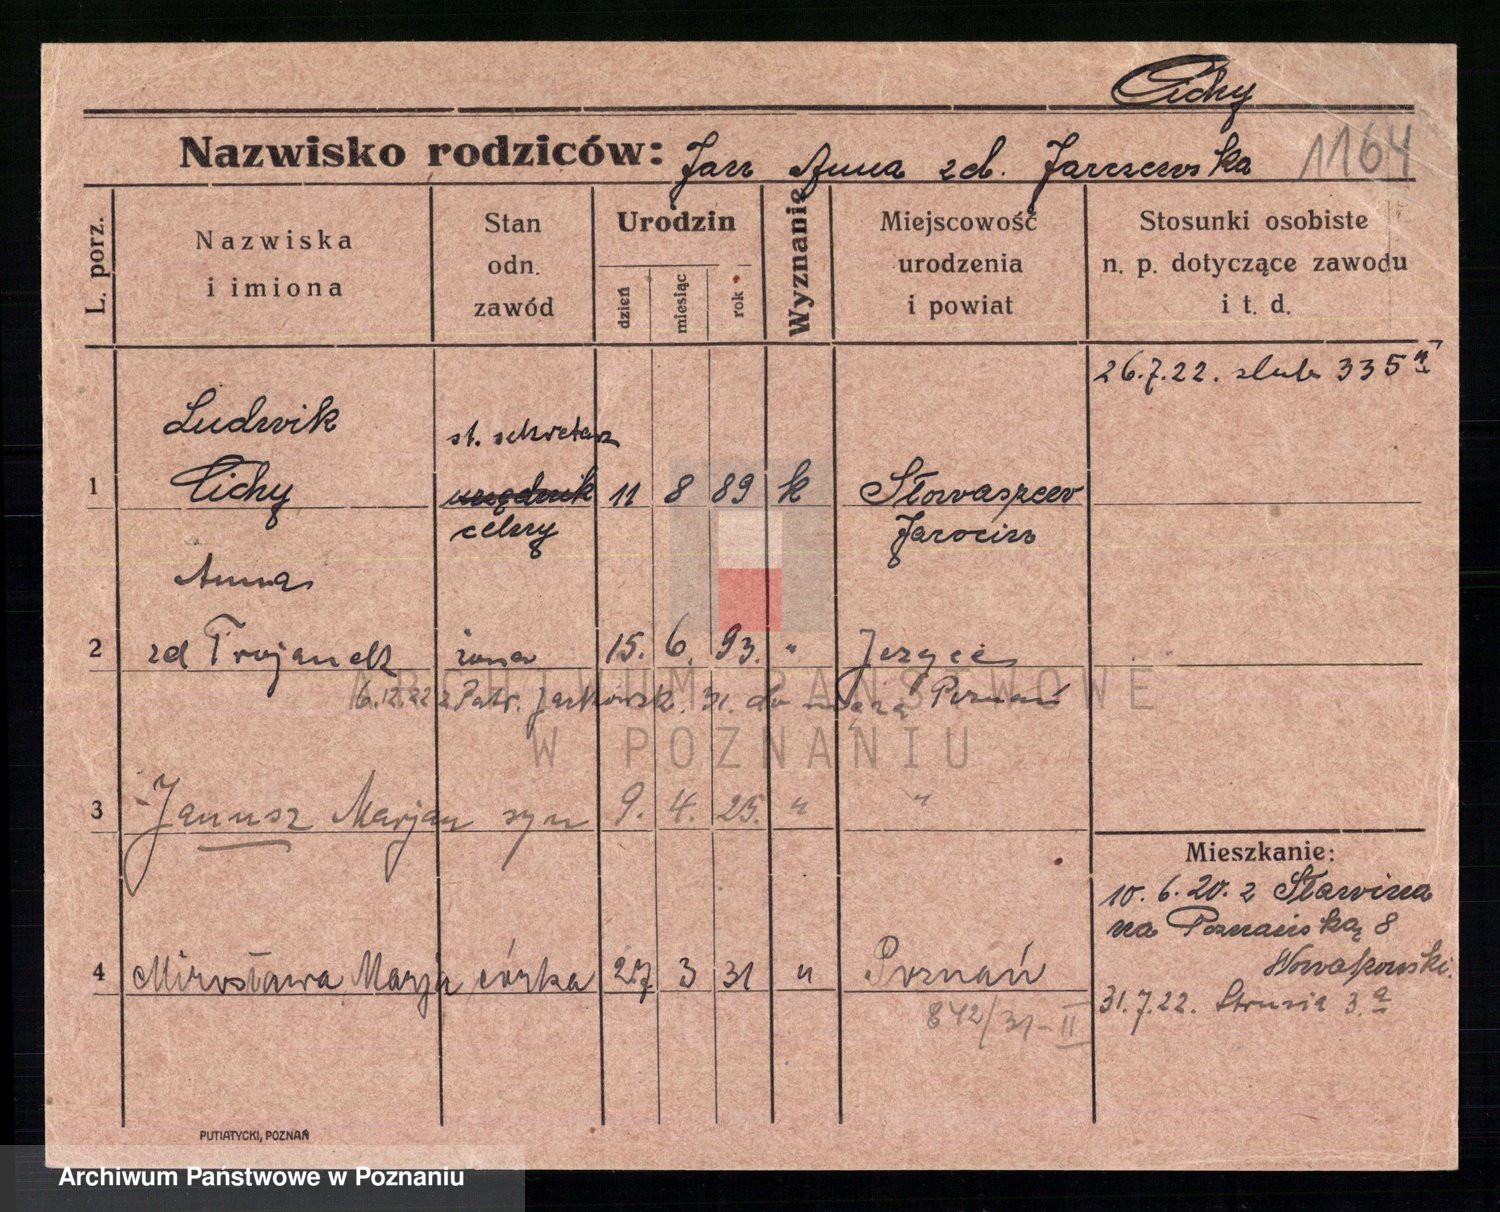 Cichy
Nazwisko rodziców: Jan Anna zd. Jarczewska
1164
L. porz.
Nazwiska
i imiona
Stan
odn.
zawód
Urodzin
dzień
miesiąc
rok
Wyznanie
Miejscowość
urodzenia
i powiat
Stosunki osobiste
n. p. dotyczące zawodu
i t. d.
26.7.22. slub 335
Ludwik
st. sekretarz
1 Cichy urzędnik 11 8 89 k
celny
Anna
2 zd Trojanek żona 15. 6. 93. " Jeżyce
6.12.22 z Patr. Jackowsk. 31. do męża Poznań
3 Janusz Marjan syn 9. 4. 25. " "
4 Mirosława Marja córka 27 3 31 " Poznań
842/31-II
Jarocin
Mieszkanie:
10. 6. 20. z
na Poznańską 8
Nowakowski.
31.7.22. Strusia 3.a
PUTIATYCKI, POZNAŃ
ARCHIWUM PAŃSTWOWE
W POZNANIU
Archiwum Państwowe w Poznaniu